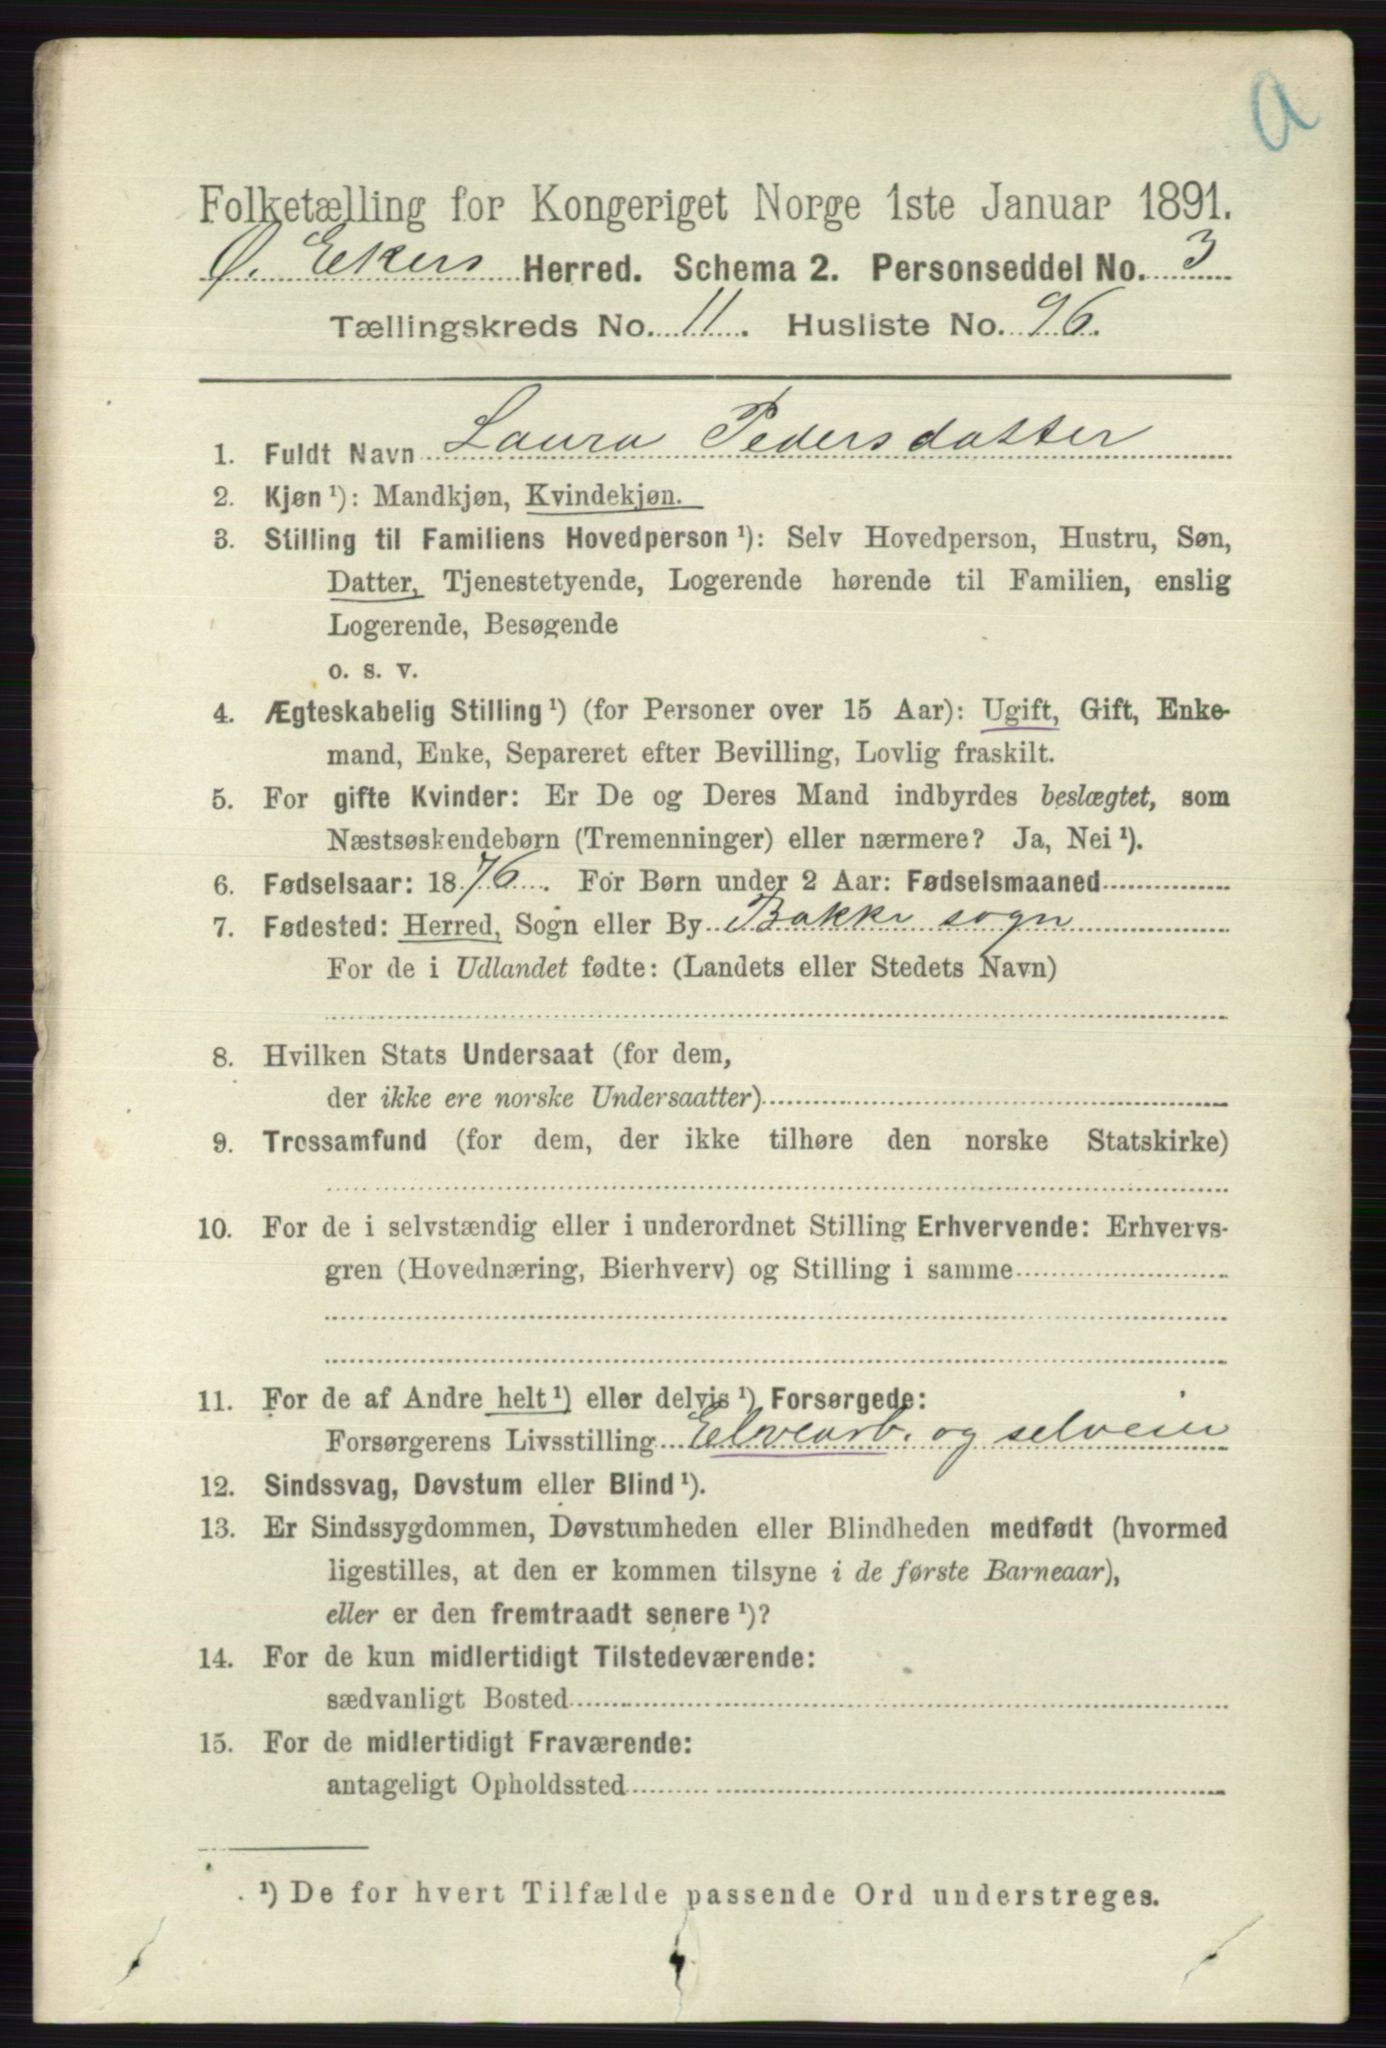 a
Folketælling for Kongeriget Norge 1ste Januar 1891.
Ø. Ekers Herred. Schema 2. Personseddel No. 3
Tællingskreds No. 11. Husliste No. 96.
1. Fuldt Navn Laura Pedersdatter
2. Kjøn ¹): Mandkjøn, Kvindekjøn.
3. Stilling til Familiens Hovedperson ¹): Selv Hovedperson, Hustru, Søn,
Datter, Tjenestetyende, Logerende hørende til Familien, enslig
Logerende, Besøgende
o. s. v.
4. Ægteskabelig Stilling ¹) (for Personer over 15 Aar): Ugift, Gift, Enke-
mand, Enke, Separeret efter Bevilling, Lovlig fraskilt.
5. For gifte Kvinder: Er De og Deres Mand indbyrdes beslægtet, som
Næstsøskendebørn (Tremenninger) eller nærmere? Ja, Nei ¹).
6. Fødselsaar: 1876. For Børn under 2 Aar: Fødselsmaaned
7. Fødested: Herred, Sogn eller By Bakke sogn
For de i Udlandet fødte: (Landets eller Stedets Navn)
8. Hvilken Stats Undersaat (for dem,
der ikke ere norske Undersaatter)
9. Trossamfund (for dem, der ikke tilhøre den norske Statskirke)
10. For de i selvstændig eller i underordnet Stilling Erhvervende: Erhvervs-
gren (Hovednæring, Bierhverv) og Stilling i samme
11. For de af Andre helt ¹) eller delvis ¹) Forsørgede:
Forsørgerens Livsstilling Elvearb. og selveier
12. Sindssvag, Døvstum eller Blind ¹).
13. Er Sindssygdommen, Døvstumheden eller Blindheden medfødt (hvormed
ligestilles, at den er kommen tilsyne i de første Barneaar),
eller er den fremtraadt senere ¹)?
14. For de kun midlertidigt Tilstedeværende:
sædvanligt Bosted
15. For de midlertidigt Fraværende:
antageligt Opholdssted
¹) De for hvert Tilfælde passende Ord understreges.